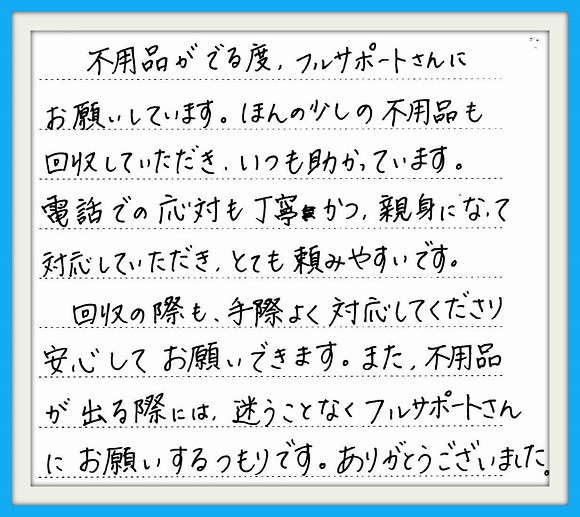 不用品がでる度、フルサポートさんに
お願いしています。ほんの少しの不用品も
回収していただき、いつも助かっています。
電話での応対も丁寧かつ、親身になって
対応していただき、とても頼みやすいです。
回収の際も、手際よく対応してくださり
安心してお願いできます。また、不用品
が出る際には、迷うことなくフルサポートさん
にお願いするつもりです。ありがとうございました。